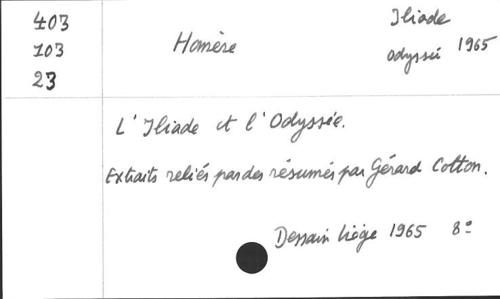 403
103
23
Homère
Iliade
Odyssée 1965
L'Iliade et l'Odyssée.
Extraits reliés par des résumés par Gérard Cotton.
Dessain Liège 1965 8°